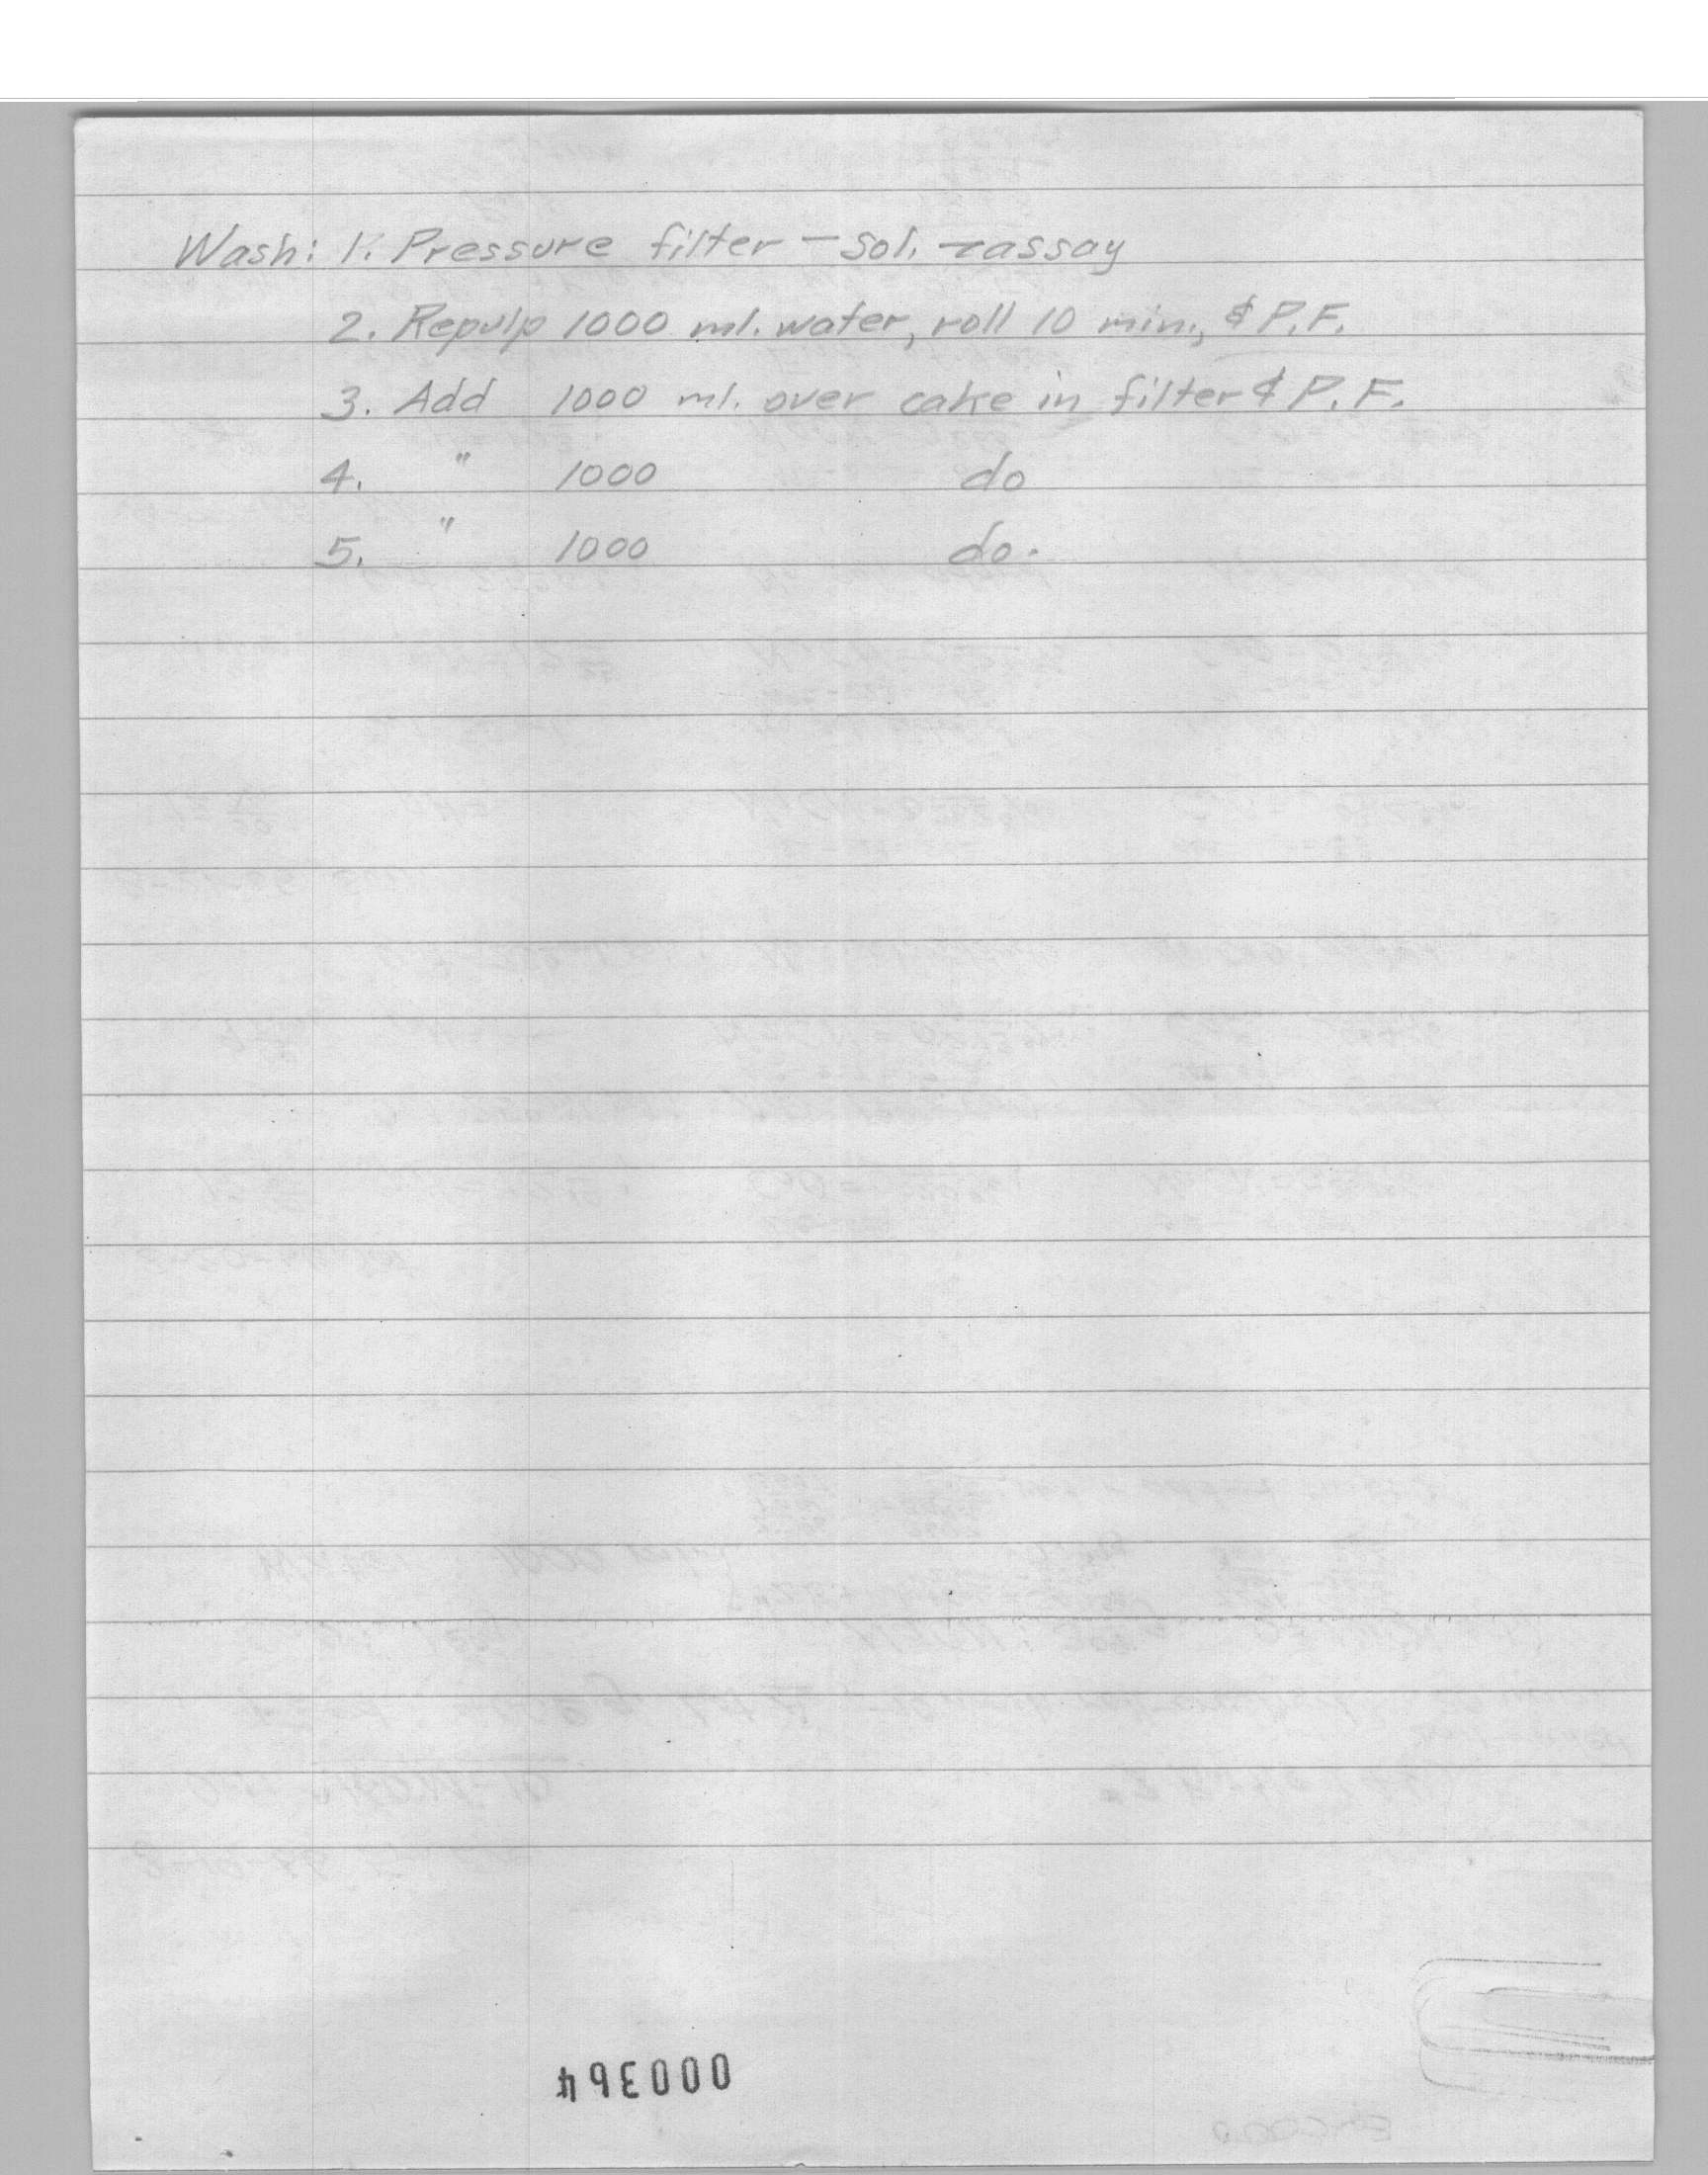 Wash: 1. Pressure filter — Sol. → assay
2. Repulp 1000 ml. water, roll 10 min., & P.F.
3. Add 1000 ml. over cake in filter & P.F.
4. " 1000 do
5. " 1000 do.
000364